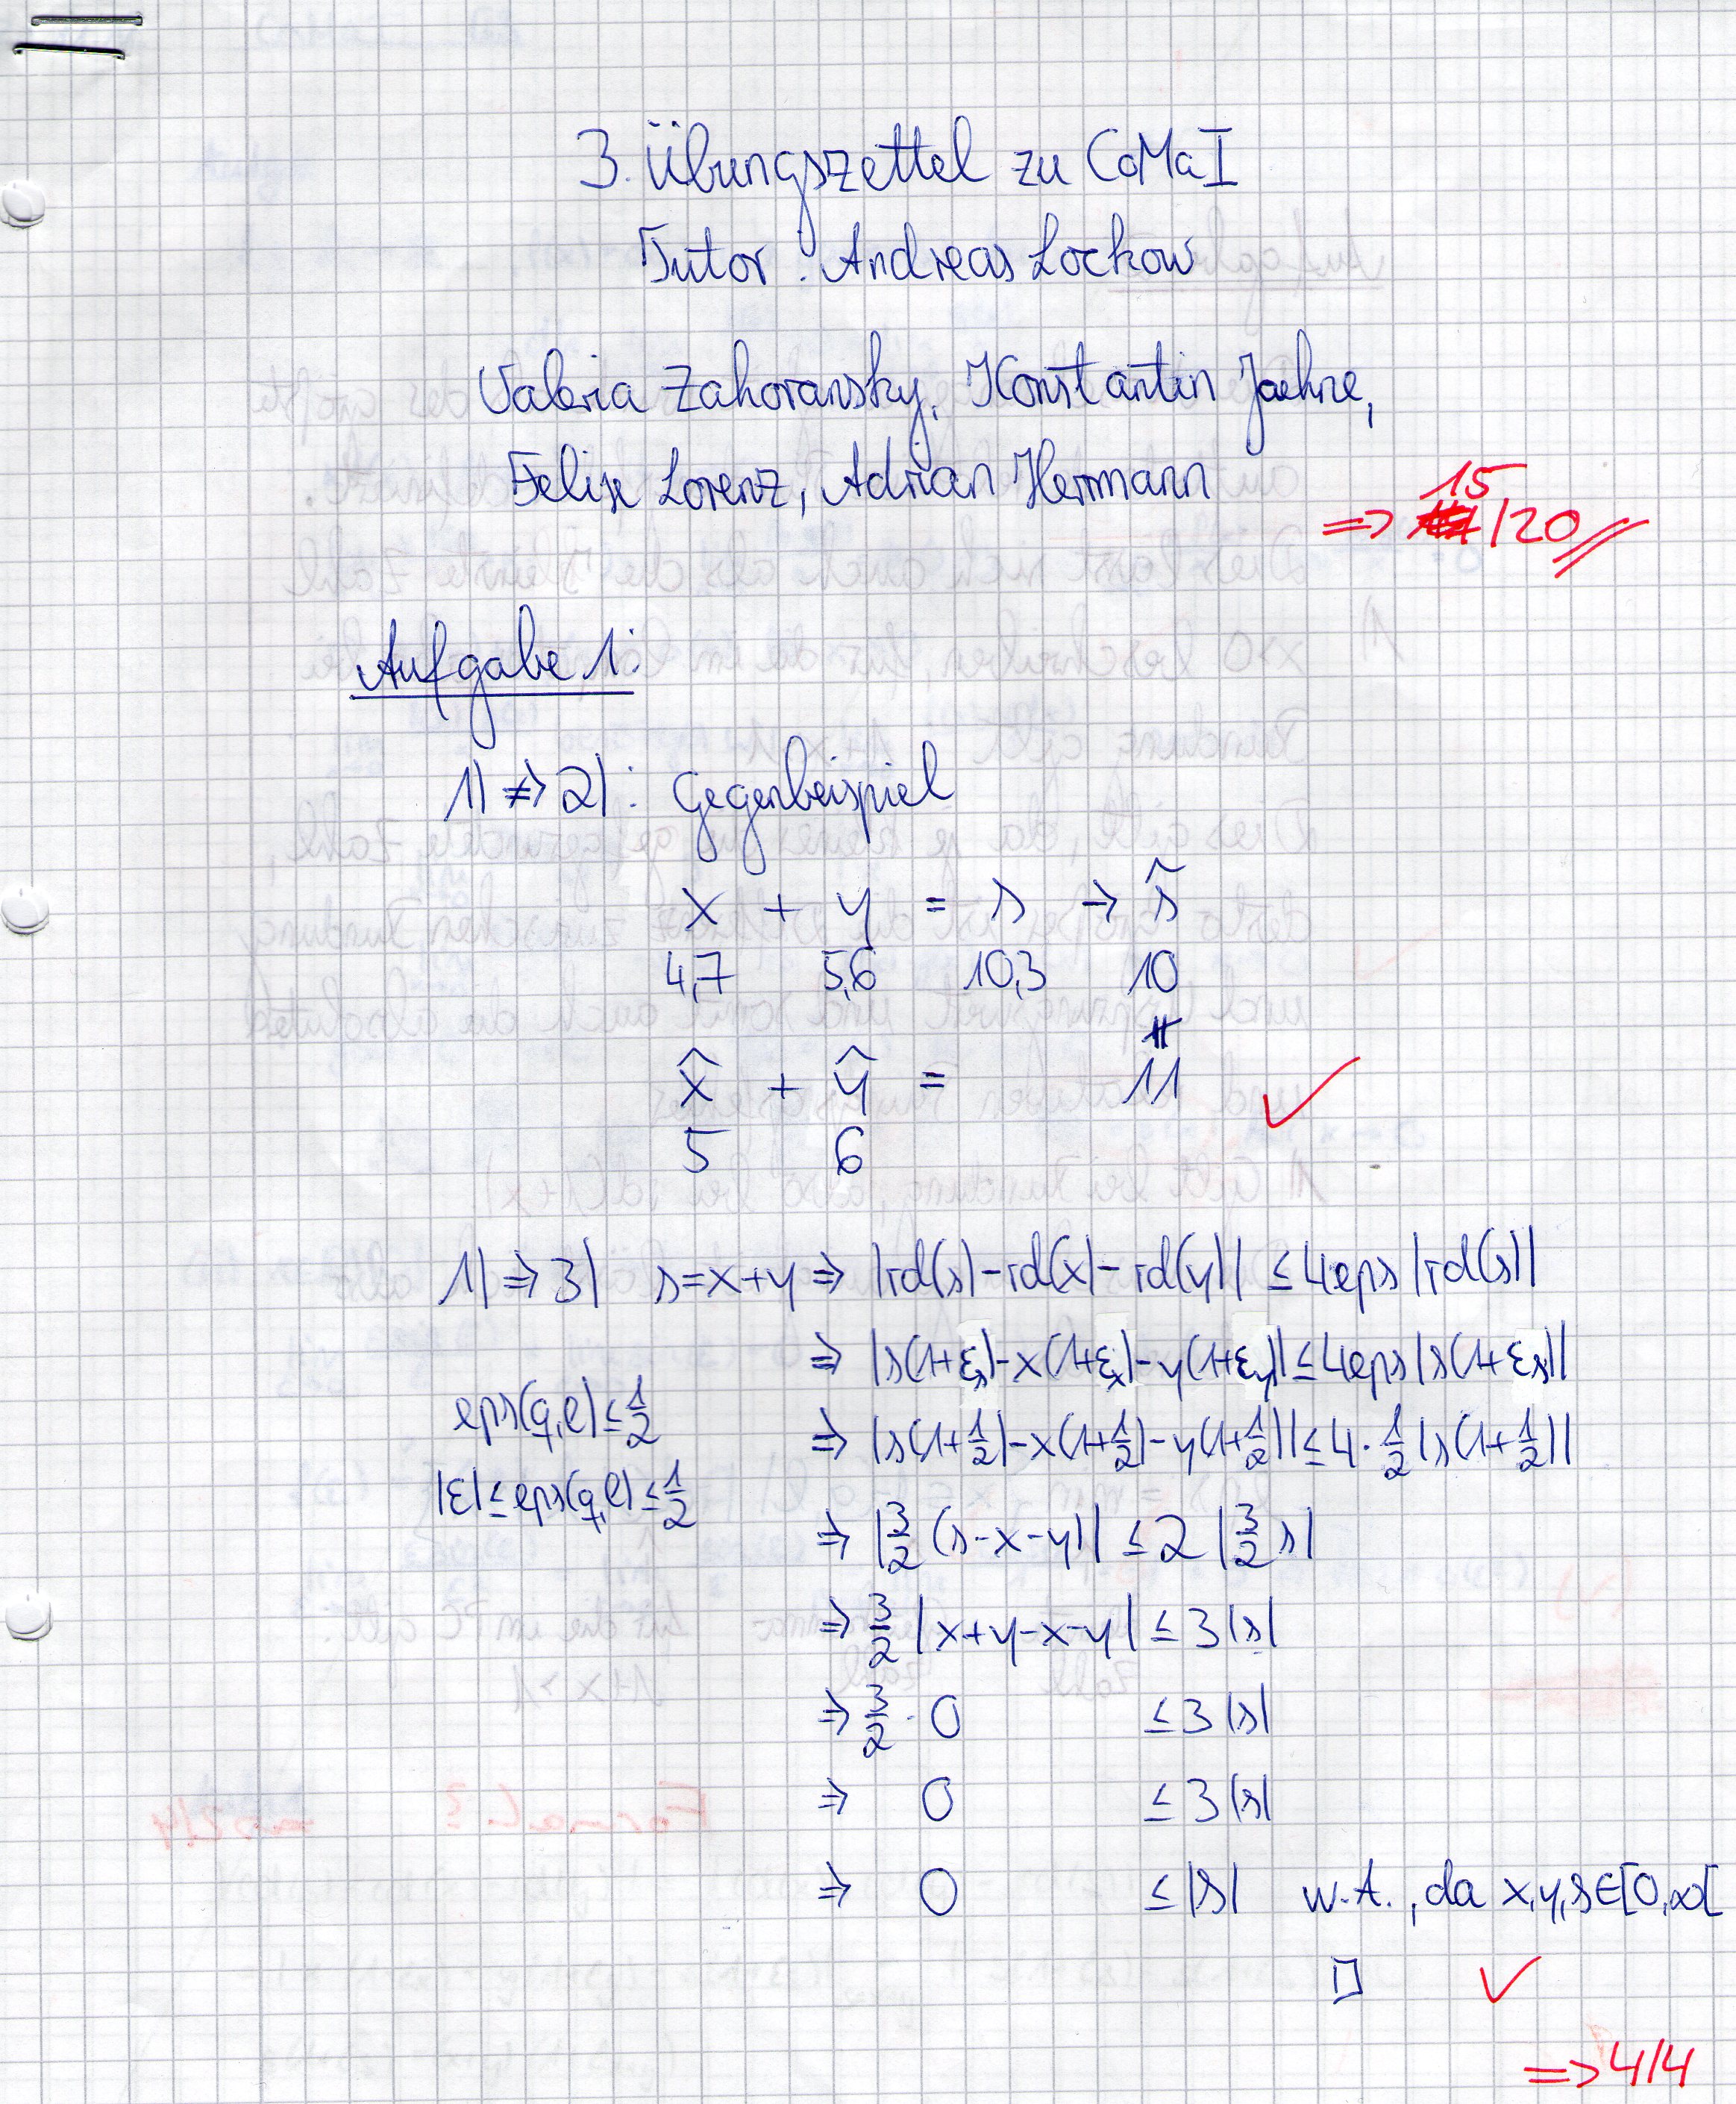 3. Übungszettel zu CoMa I
Tutor: Andreas Lockow
Valeria Zahoransky, Konstantin Jaehne,
Felix Lorenz, Adrian Herrmann
15
=> /20
Aufgabe 1:
1) ⇏ 2): Gegenbeispiel
x + y = s → ŝ
4,7 5,6 10,3 10
≠
x̂ + ŷ = 11 ✓
5 6
1) ⇒ 3) s=x+y ⇒ |rd(s)-rd(x)-rd(y)| ≤ 4eps |rd(s)|
⇒ |s(1+εs)-x(1+εx)-y(1+εy)| ≤ 4eps |s(1+εs)|
eps(q,l) ≤ 1/2 ⇒ |s(1+1/2)-x(1+1/2)-y(1+1/2)| ≤ 4·1/2 |s(1+1/2)|
|ε| ≤ eps(q,l) ≤ 1/2 ⇒ |3/2 (s-x-y)| ≤ 2 |3/2 s|
⇒ 3/2 |x+y-x-y| ≤ 3|s|
⇒ 3/2 · 0 ≤ 3|s|
⇒ 0 ≤ 3|s|
⇒ 0 ≤ |s| w.A., da x,y,s∈[0,∞[
□ ✓
=> 4/4